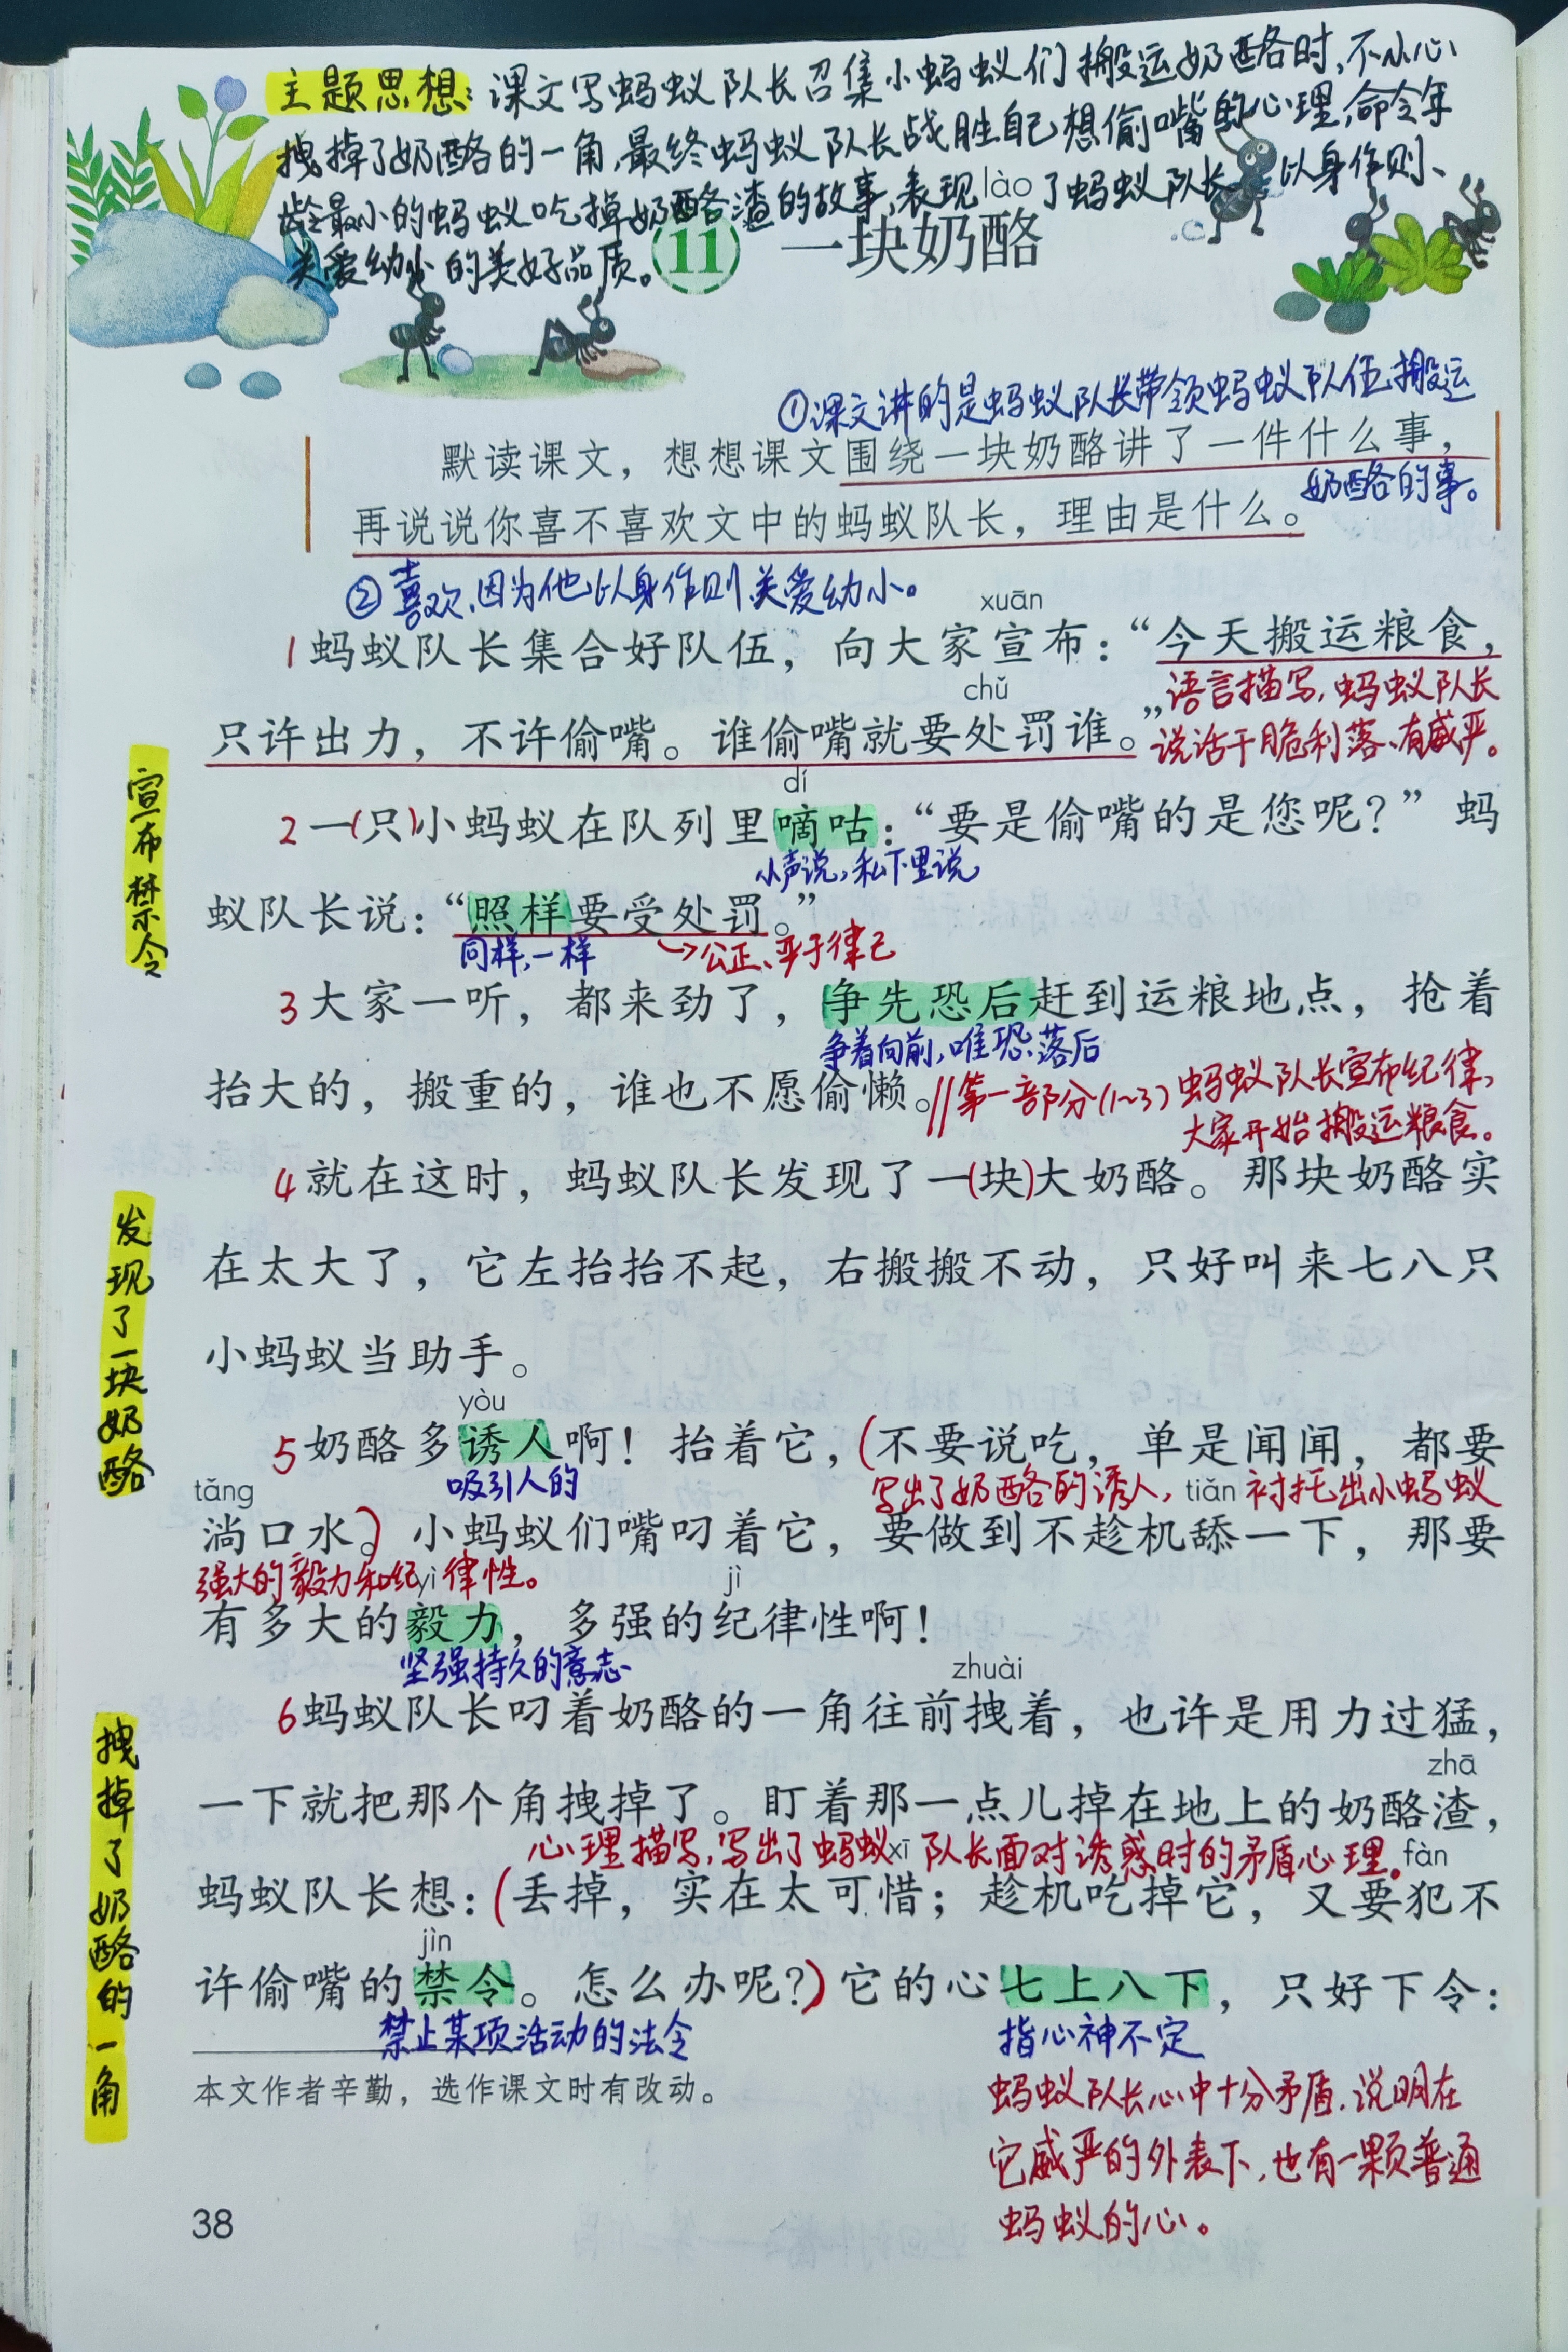 主题思想：课文写蚂蚁队长召集小蚂蚁们搬运奶酪时，不小心
拽掉了奶酪的一角，最终蚂蚁队长战胜自己想偷嘴的心理，命令年
龄最小的蚂蚁吃掉奶酪渣的故事，表现了蚂蚁队长以身作则、
关爱幼小的美好品质。
lào
11 一块奶酪
①课文讲的是蚂蚁队长带领蚂蚁队伍搬运
默读课文，想想课文围绕一块奶酪讲了一件什么事，
奶酪的事。
再说说你喜不喜欢文中的蚂蚁队长，理由是什么。
②喜欢，因为他以身作则关爱幼小。
xuān
1蚂蚁队长集合好队伍，向大家宣布：“今天搬运粮食，
语言描写，蚂蚁队长
chǔ
只许出力，不许偷嘴。谁偷嘴就要处罚谁。”
说话干脆利落、有威严。
宣布禁令
dí
2一(只)小蚂蚁在队列里嘀咕：“要是偷嘴的是您呢？”蚂
小声说，私下里说
蚁队长说：“照样要受处罚。”
同样，一样
→公正、严于律己
3大家一听，都来劲了，争先恐后赶到运粮地点，抢着
争着向前，唯恐落后
抬大的，搬重的，谁也不愿偷懒。//第一部分(1~3)蚂蚁队长宣布纪律，
大家开始搬运粮食。
4就在这时，蚂蚁队长发现了一(块)大奶酪。那块奶酪实
在太大了，它左抬抬不起，右搬搬不动，只好叫来七八只
小蚂蚁当助手。
发现了一块奶酪
yòu
5奶酪多诱人啊！抬着它，(不要说吃，单是闻闻，都要
吸引人的
写出了奶酪的诱人，衬托出小蚂蚁
tǎng tiǎn
淌口水。)小蚂蚁们嘴叼着它，要做到不趁机舔一下，那要
强大的毅力和纪律性。
yì jì
有多大的毅力，多强的纪律性啊！
坚强持久的意志
zhuài
6蚂蚁队长叼着奶酪的一角往前拽着，也许是用力过猛，
zhā
一下就把那个角拽掉了。盯着那一点儿掉在地上的奶酪渣，
心理描写，写出了蚂蚁队长面对诱惑时的矛盾心理。
xī fàn
蚂蚁队长想：(丢掉，实在太可惜；趁机吃掉它，又要犯不
jìn
许偷嘴的禁令。怎么办呢？)它的心七上八下，只好下令：
禁止某项活动的法令
指心神不定
拽掉了奶酪的一角
本文作者辛勤，选作课文时有改动。
蚂蚁队长心中十分矛盾，说明在
它威严的外表下，也有一颗普通
蚂蚁的心。
38